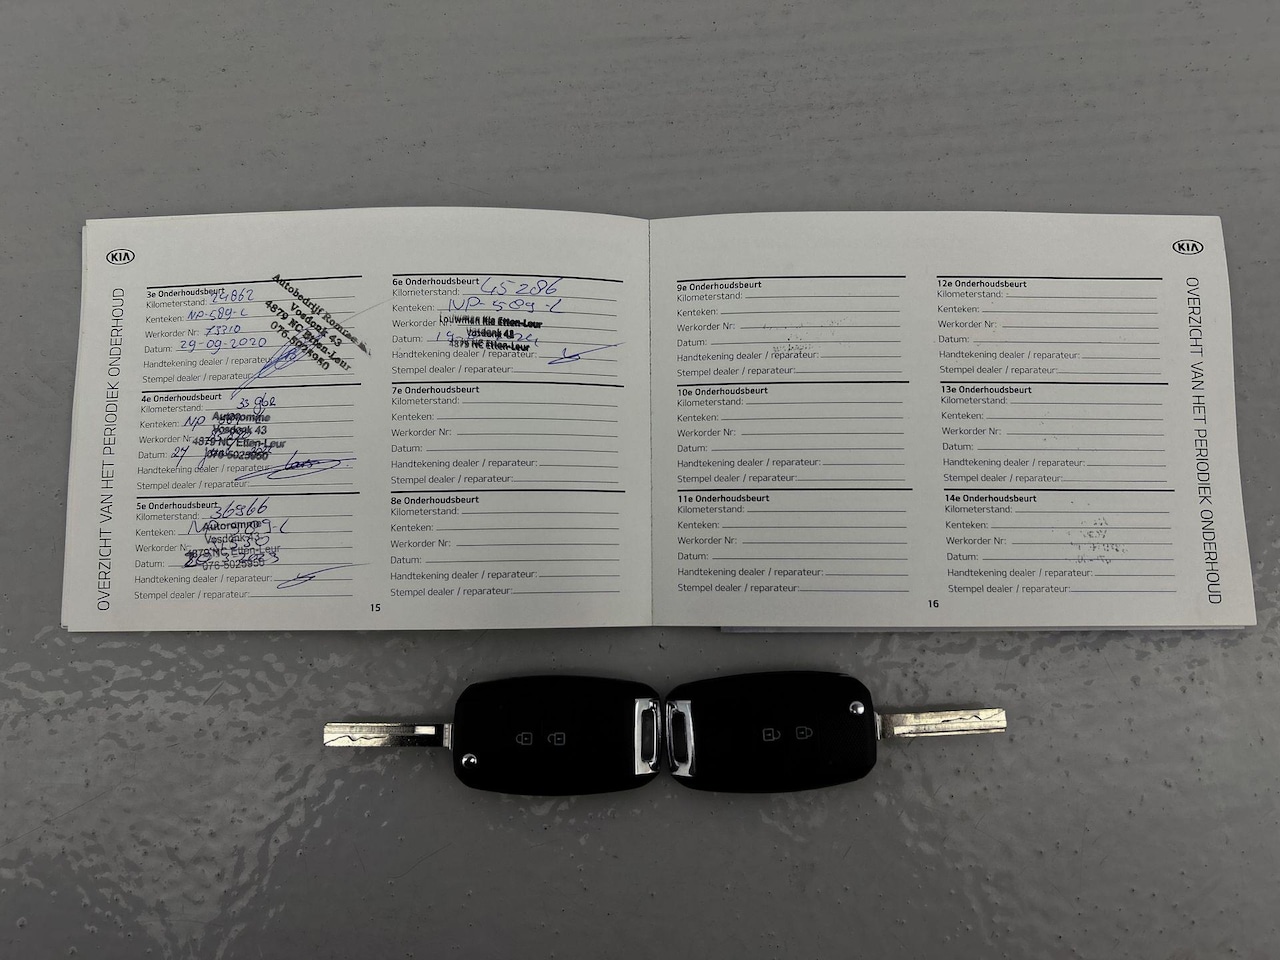 KIA
OVERZICHT VAN HET PERIODIEK ONDERHOUD
3e Onderhoudsbeurt
Kilometerstand: 24862
Kenteken: NP-589-L
Werkorder Nr: 73210
Datum: 29-09-2020
Handtekening dealer / reparateur:
Stempel dealer / reparateur:
Autobedrijf Romme
Vosdonk 43
4879 NC Etten-Leur
076-5025950
4e Onderhoudsbeurt
Kilometerstand:
Kenteken: NP
Werkorder Nr:
Datum: 27
Handtekening dealer / reparateur:
Stempel dealer / reparateur:
Autoromme
Vosdonk 43
4879 NC Etten-Leur
076-5025950
5e Onderhoudsbeurt
Kilometerstand: 36966
Kenteken:
Werkorder Nr:
Datum:
Handtekening dealer / reparateur:
Stempel dealer / reparateur:
Autoromme
Vosdonk 43
4879 NC Etten-Leur
076-5025950
6e Onderhoudsbeurt
Kilometerstand: 45286
Kenteken: NP-589-L
Werkorder Nr:
Datum:
Handtekening dealer / reparateur:
Stempel dealer / reparateur:
Louwman Kia Etten-Leur
Vosdonk 43
4879 NC Etten-Leur
7e Onderhoudsbeurt
Kilometerstand:
Kenteken:
Werkorder Nr:
Datum:
Handtekening dealer / reparateur:
Stempel dealer / reparateur:
8e Onderhoudsbeurt
Kilometerstand:
Kenteken:
Werkorder Nr:
Datum:
Handtekening dealer / reparateur:
Stempel dealer / reparateur:
15
9e Onderhoudsbeurt
Kilometerstand:
Kenteken:
Werkorder Nr:
Datum:
Handtekening dealer / reparateur:
Stempel dealer / reparateur:
10e Onderhoudsbeurt
Kilometerstand:
Kenteken:
Werkorder Nr:
Datum:
Handtekening dealer / reparateur:
Stempel dealer / reparateur:
11e Onderhoudsbeurt
Kilometerstand:
Kenteken:
Werkorder Nr:
Datum:
Handtekening dealer / reparateur:
Stempel dealer / reparateur:
12e Onderhoudsbeurt
Kilometerstand:
Kenteken:
Werkorder Nr:
Datum:
Handtekening dealer / reparateur:
Stempel dealer / reparateur:
13e Onderhoudsbeurt
Kilometerstand:
Kenteken:
Werkorder Nr:
Datum:
Handtekening dealer / reparateur:
Stempel dealer / reparateur:
14e Onderhoudsbeurt
Kilometerstand:
Kenteken:
Werkorder Nr:
Datum:
Handtekening dealer / reparateur:
Stempel dealer / reparateur:
16
KIA
OVERZICHT VAN HET PERIODIEK ONDERHOUD